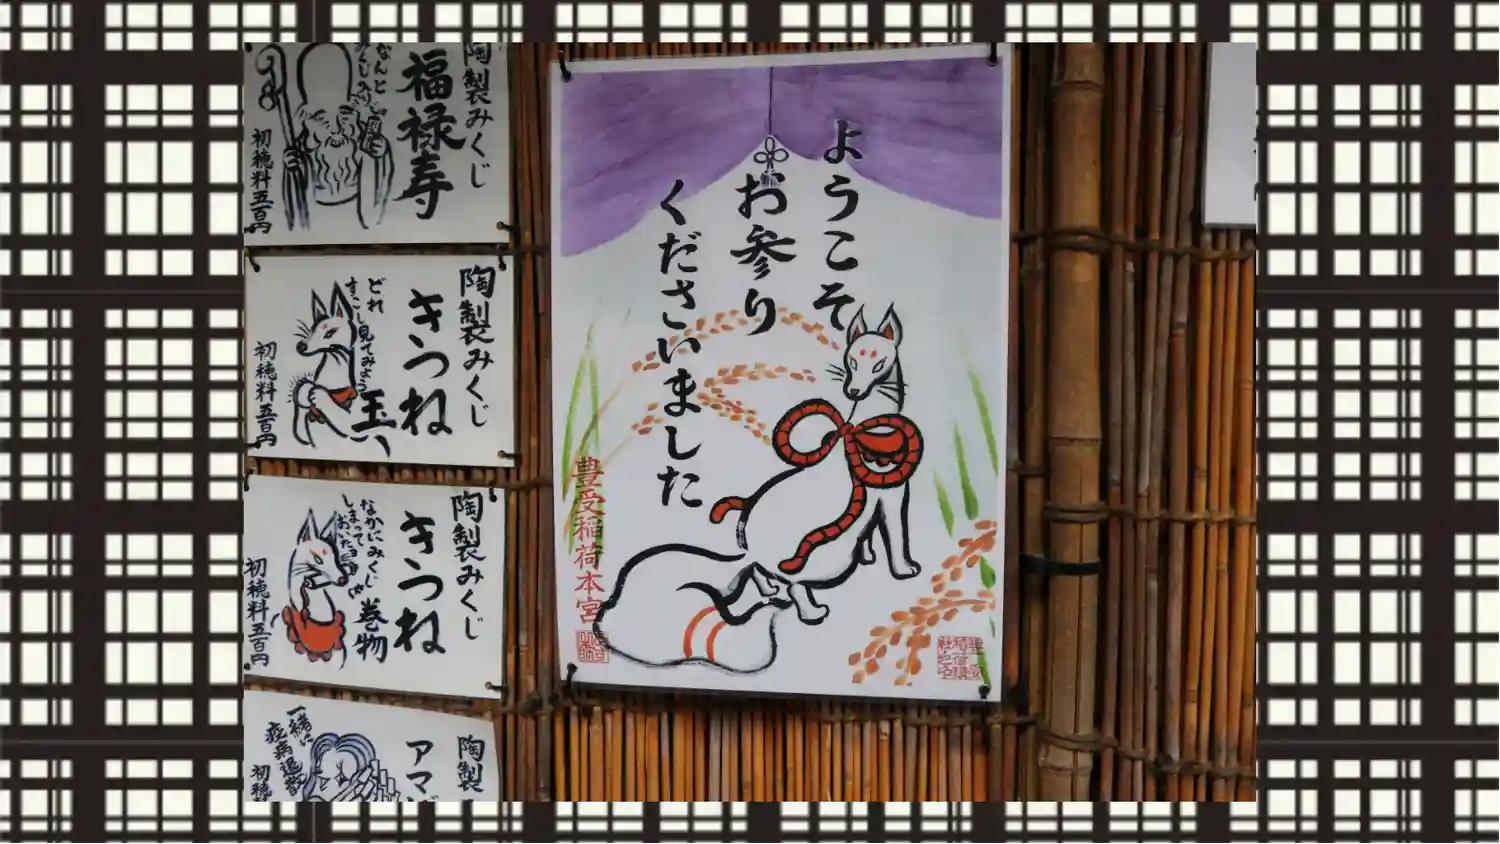 陶製みくじ
福禄寿
なんと
みくじ入り
初穂料五百円
陶製みくじ
きつね
玉
どれ
すこし見てみよう
初穂料五百円
陶製みくじ
きつね
巻物
なかにみくじ
しまって
おいたヨ
初穂料五百円
陶製
アマ
一緒に
疫病退散
初穂
ようこそ
お参り
くださいました
豊受稲荷本宮